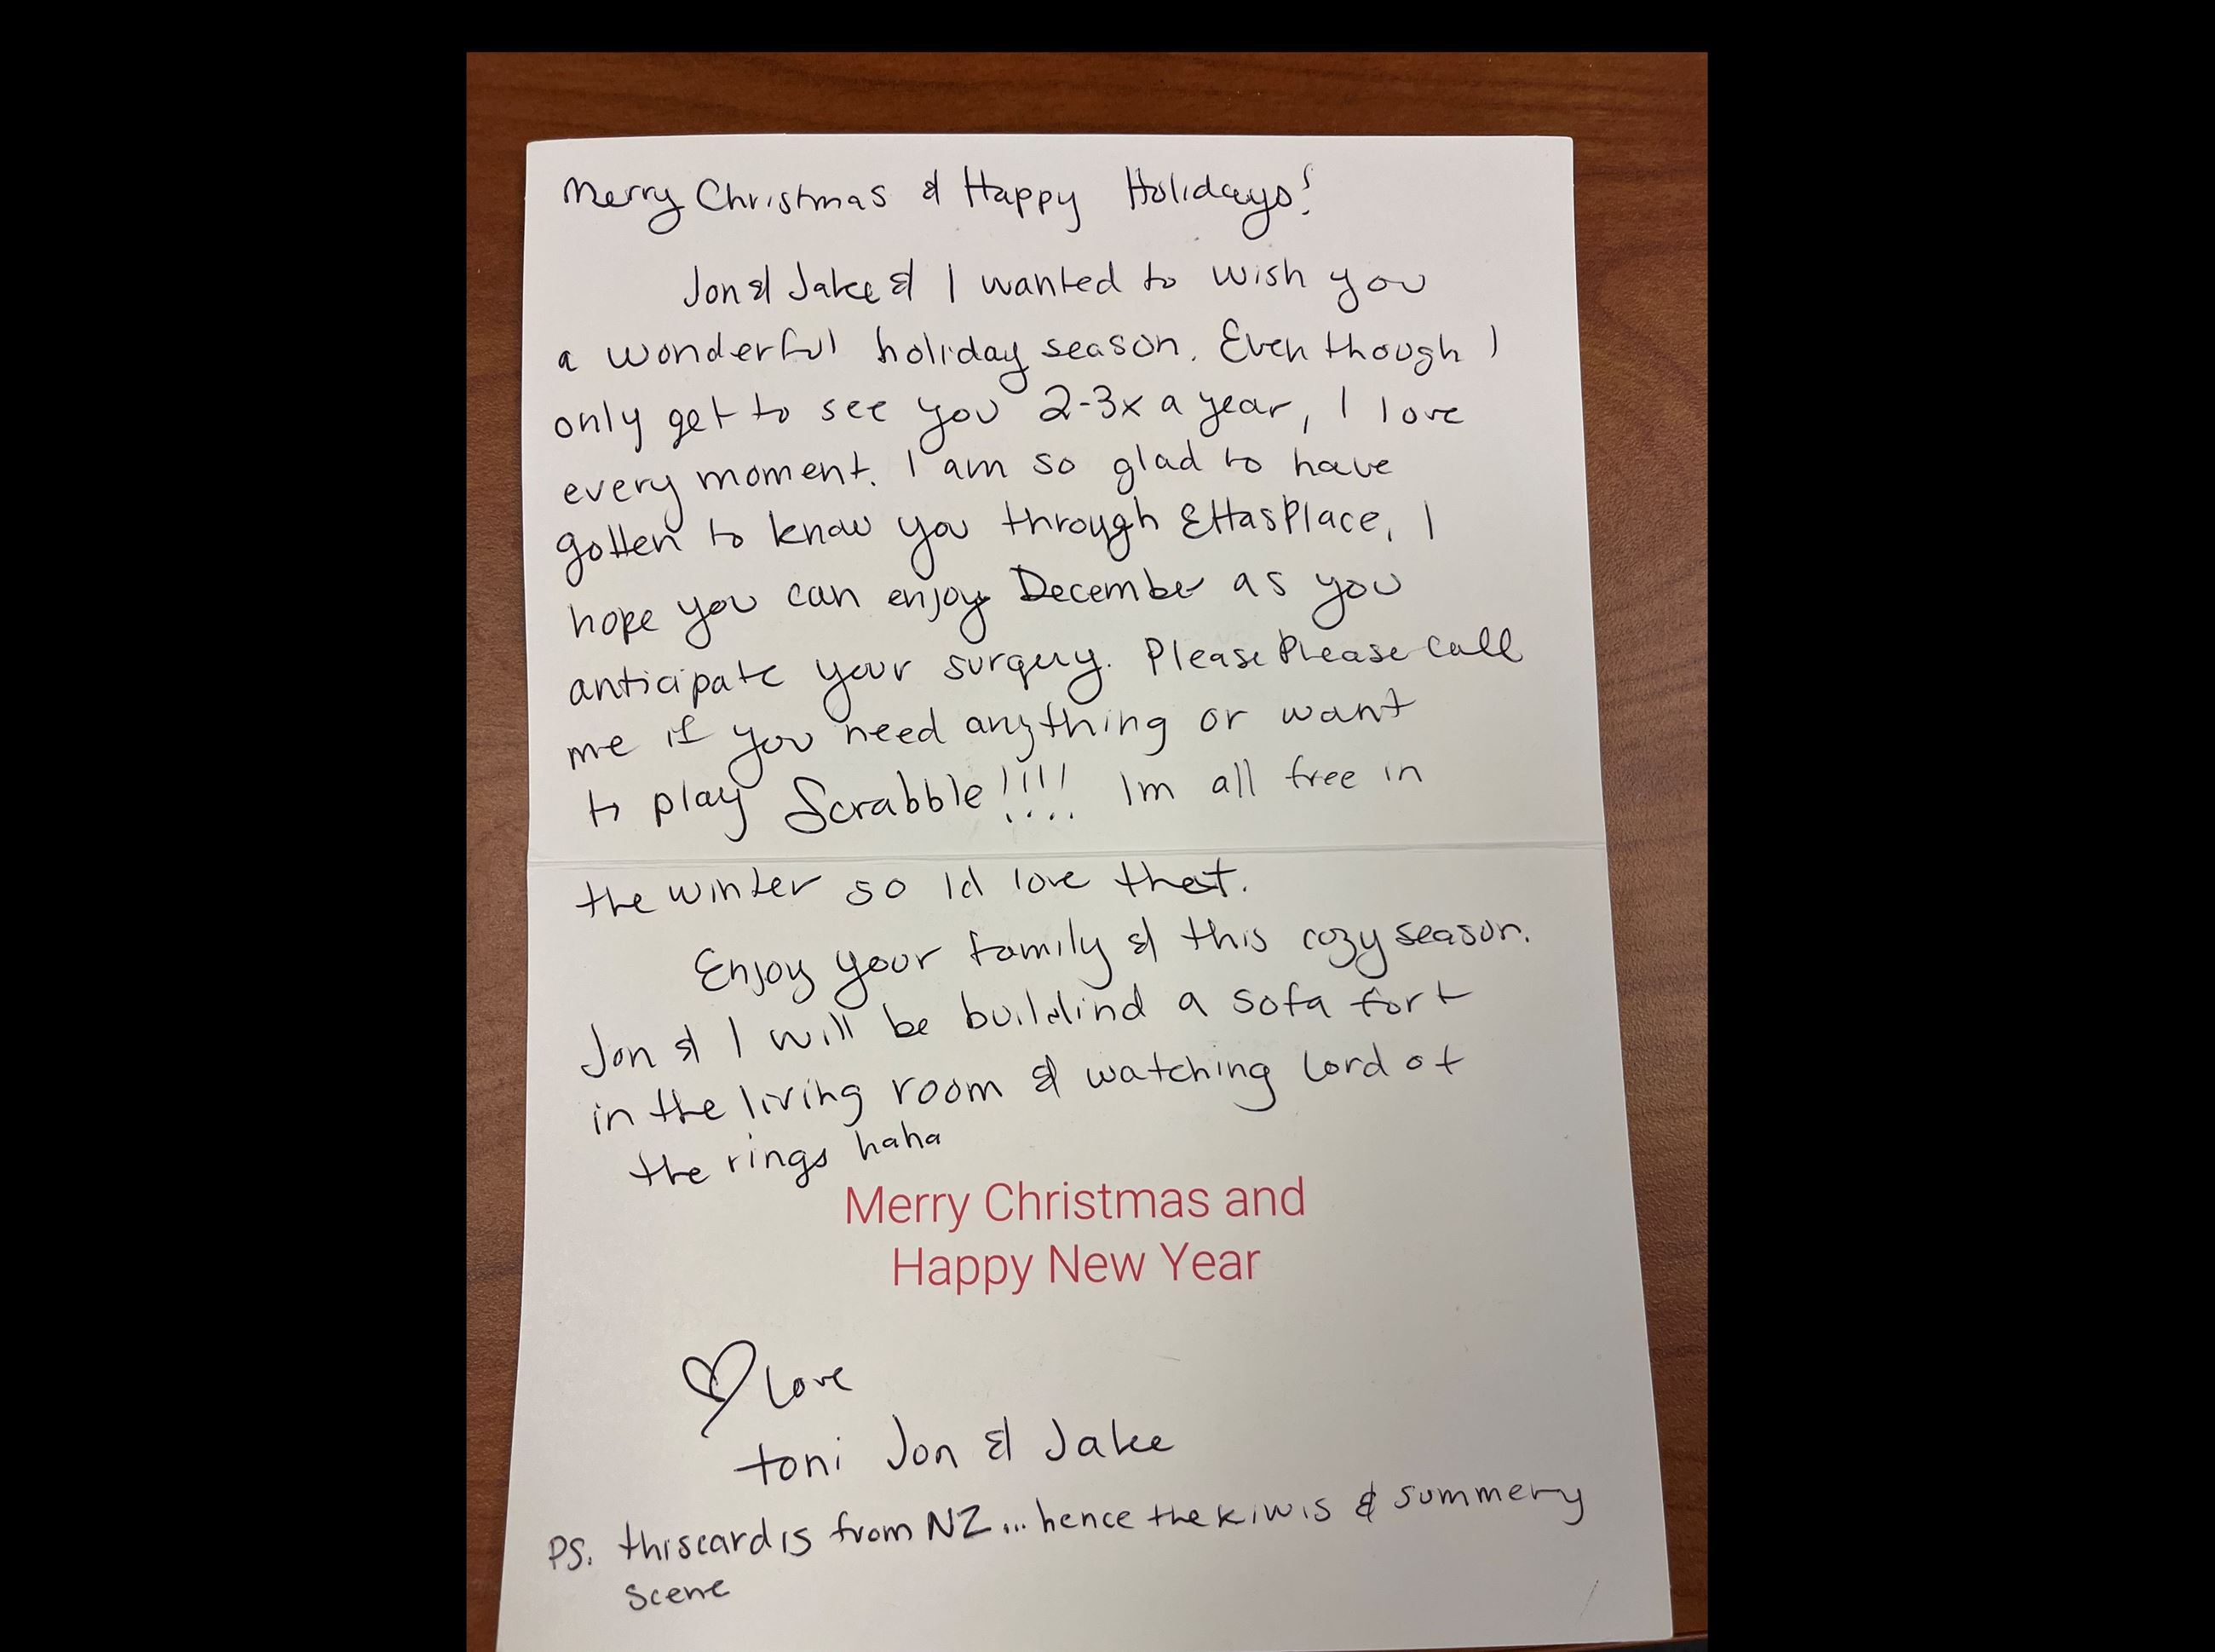 Merry Christmas & Happy Holidays!
Jon & Jake & I wanted to wish you
a wonderful holiday season. Even though I
only get to see you 2-3x a year, I love
every moment. I am so glad to have
gotten to know you through EttasPlace, I
hope you can enjoy December as you
anticipate your surgery. Please Please call
me if you need anything or want
to play Scrabble!!!! Im all free in
the winter so Id love that.
Enjoy your family & this cozy season.
Jon & I will be buildind a sofa fort
in the living room & watching Lord of
the rings haha
Merry Christmas and
Happy New Year
love
toni Jon & Jake
PS. this card is from NZ... hence the kiwis & summery
scene